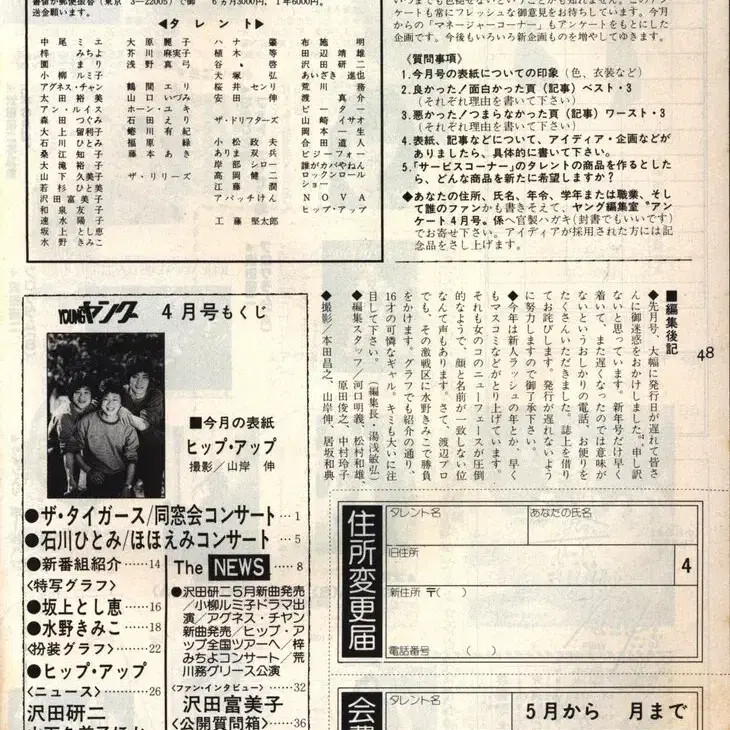 番留か郵便振替(東京 3―22005)で御
送金願います。
6ヵ月3000円。1年6000円。
◀タレント▶
中尾ミエ
梓みちよ
園まり
小柳ルミ子
アグネス・チャン
太田裕美
アン・ルイス
森田つぐみ
大上留利子
石川ひとみ
桑江知子
大滝裕子
山下久美子
若杉ひと美
沢田富美子
和泉友子
速水陽子
坂上とし恵
水野きみこ
大原麗子
芥川麻実子
浅野真弓
鶴間エリ
山口いづみ
ホーン・ユキ
石田えり
蜷川有紀
福原緑
藤本あき
ザ・リリーズ
ハナ肇
植木等
谷啓
犬塚弘
桜井センリ
安田伸
ザ・ドリフターズ
小松政夫
ありま双兵
岸部シロー
高岡健二
江藤潤
アパッチけん
工藤堅太郎
布施明
田辺靖雄
沢田研二
あいざき進也
荒川務
渡真介
ピーター
山崎イサオ
岡本一生
合田道人
ビジーフォー
誰がカバやねん
ロックンロール
ショー
NOVA
ヒップ・アップ
ケートも常にフレッシュな御意見をお待ちしています。今月
からの「マネージャーコーナー」もアンケートをもとにした
企画です。今後もいろいろ新企画ものを増やしてゆきます。
《質問事項》
1.今月号の表紙についての印象(色、衣装など)
2.良かった/面白かった頁(記事)ベスト・3
(それぞれ理由を書いて下さい)
3.悪かった/つまらなかった頁(記事)ワースト・3
(それぞれ理由を書いて下さい)
4.表紙、記事などについて、アイディア・企画などが
ありましたら、具体的に書いて下さい。
5.「サービスコーナー」のタレントの商品を作るとした
ら、どんな商品を新たに希望しますか?
◆あなたの住所、氏名、年令、学年または職業、そし
て誰のファンかも書きそえて、ヤング編集室〝アン
ケート4月号〟係へ官製ハガキ(封書でもいいです)
でお寄せ下さい。アイディアが採用された方には記
念品をさし上げます。
48
■編集後記
◆先月号、大幅に発行日が遅れて皆さ
んに御迷惑をおかけしました。申し訳
ないと思っています。新年号だけ早く
着いて、また遅くなったのでは意味が
ないというおしかりの電話、お便りを
たくさんいただきました。誌上を借り
てお詫びします。発行が遅れないよう
に努力しますので御了承下さい。
◆今年は新人ラッシュの年とか。早く
もマスコミなどがとり上げています。
それも女のコのニューフェースが圧倒
的なようで、顔と名前が一致しない位
なんて声もあります。さて、渡辺プロ
でも、その激戦区に水野きみこで勝負
をかけます。グラフでも紹介の通り、
16才の可憐なギャル。キミも大いに注
目して下さい。(編集長・湯浅敏弘)
◆編集スタッフ/河口明義、松村和雄、
原田俊之、中村玲子
◆撮影/本田昌之、山岸伸、居坂和典
YOUNGヤング 4月号もくじ
■今月の表紙
ヒップ・アップ
撮影/山岸 伸
●ザ・タイガース/同窓会コンサート…1
●石川ひとみ/ほほえみコンサート…5
●新番組紹介……14
〈特写グラフ〉
●坂上とし恵……16
●水野きみこ……18
〈扮装グラフ〉……22
●ヒップ・アップ
〈ニュース〉……26
沢田研二
The NEWS……8
●沢田研二5月新曲発売
/小柳ルミ子ドラマ出
演/アグネス・チャン
新曲発売/ヒップ・ア
ップ全国ツアーへ/梓
みちよコンサート/荒
川務グリース公演
〈ファン・インタビュー〉……32
沢田富美子
〈公開質問箱〉……36
住所変更届
タレント名
あなたの氏名
旧住所
4
新住所 〒( )
電話番号 ( )
タレント名
5月から 月まで